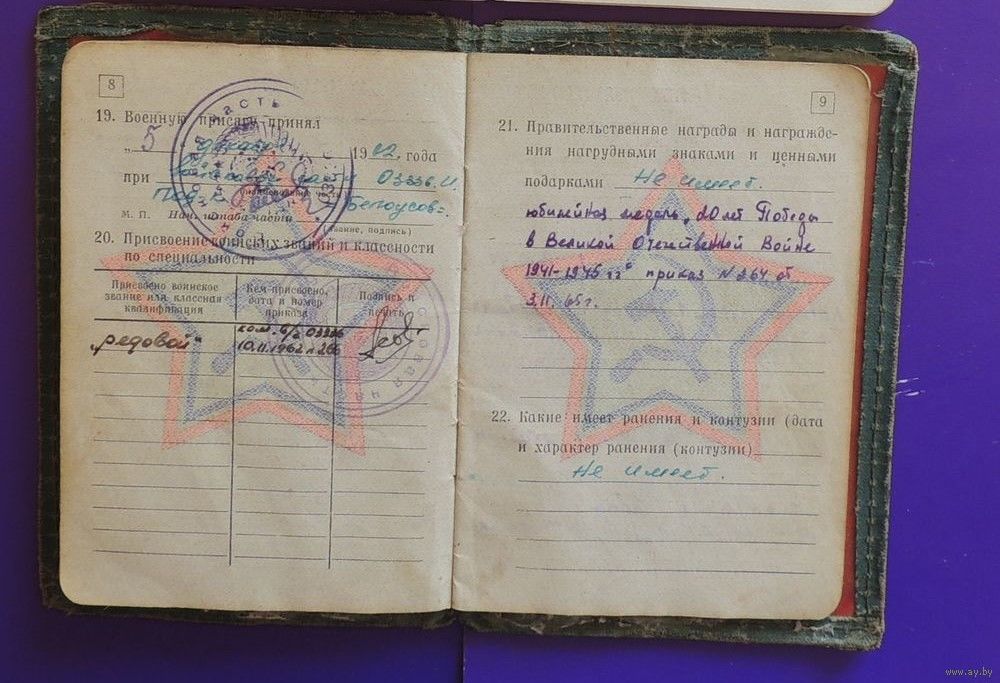 8
19. Военную присягу принял
„5 декабря 1962 года
при войсковой части 03336.
М. П. Нач. штаба части Белоусов
(звание, подпись)
20. Присвоение воинских званий и классности
по специальности
Присвоено воинское звание или классная квалификация
Кем присвоено, дата и номер приказа
Подпись и печать
„рядовой“
ком. в/ч 03336
10.11.1962 № 266
9
21. Правительственные награды и награжде-
ния нагрудными знаками и ценными
подарками Не имеет.
юбилейная медаль „20 лет Победы
в Великой Отечественной Войне
1941-1945 гг“ приказ № 264 от
3.11.65г.
22. Какие имеет ранения и контузии (дата
и характер ранения (контузии)
Не имеет.
www.ay.by